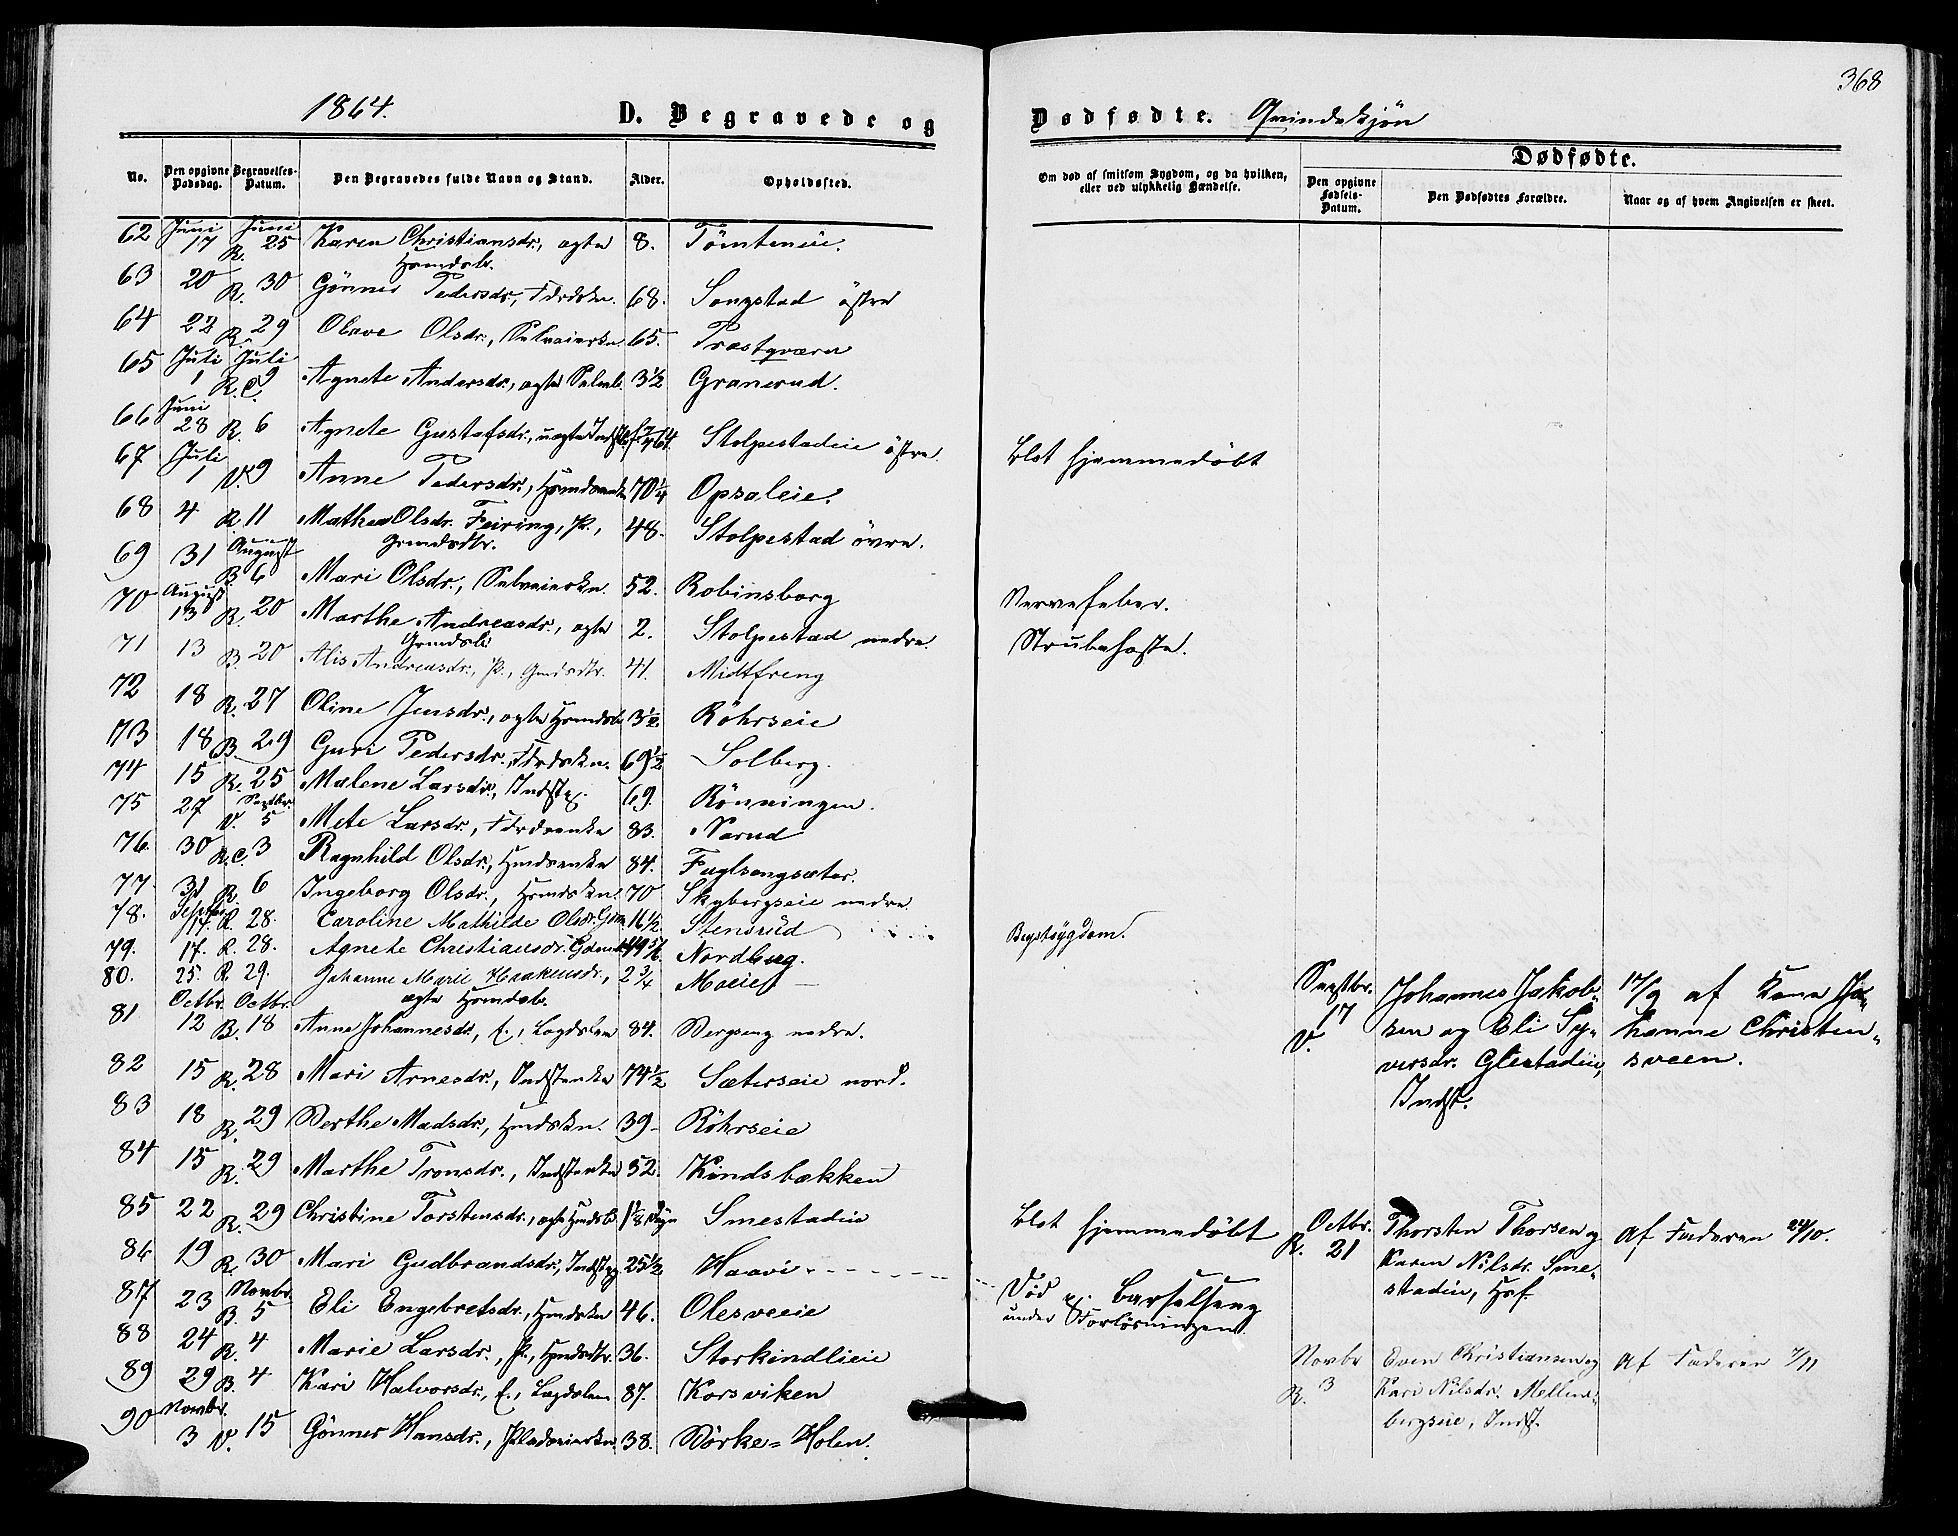 368
1864. D. Begravede og Dødfødte. Qvindekjøn
No. Den opgivne Dødsdag. Begravelses-Datum. Den Begravedes fulde Navn og Stand. Alder. Opholdssted. Om død af smitsom Sygdom, og da hvilken, eller ved ulykkelig Hændelse. Dødfødte. Den opgivne Fødsels-Datum. Den Dødfødtes Forældre. Naar og af hvem Angivelsen er skeet.
62 Juni 17 Juni R. 25 Karen Christiansdr., ægte Hsmdsb. 8. Tömteneie.
63 20 R. 30 Gönner Pedersdr., Fdrdskn. 68. Songstad östre
64 22 R. 29 Olave Olsdr., Selveierkn. 65. Præstqværn
65 Juli 1 Juli 9 R.C. Agnete Andersdr., ægte Selveb. 3½ Granerud.
66 Juni 28 R. 6 Agnete Gustafsdr., uægte Indstb. Stolpestadeie östre. blot hjemmedøbt
67 Juli 1 V. 9 Anne Pedersdr., Hsmdsenke 70¼ Opsaleie.
68 4 R. 11 Mathea Olsdr. Feiring, P., Grmdsdtr. 48. Stolpestad övre.
69 31 August B. 6 Mari Olsdr., Selveierkn. 52. Robinsborg Nervefeber.
70 August 13 R. 20 Marthe Andreasdr., ægte Grmdsb. 2. Stolpestad nedre. Strubehoste.
71 13 B. 20 Alis Andreasdr., P., Gmdsdtr. 41. Midtfreng
72 18 R. 27 Oline Jensdr., ægte Hsmdsb. 3½ Röhrseie
73 18 B. 29 Guri Pedersdr., Fdrdskn. 69½ Solberg.
74 15 R. 25 Malene Larsdr., Indstpg. 69. Rönningen.
75 27 Septbr. V. 5 Mete Larsdr., Fdrdsenke 83. Narud
76. 30 R.C. 3 Ragnhild Olsdr., Hmdsenke 84. Fuglsangsæter.
77. 31 R. 6 Ingeborg Olsdr., Hsmdskn. 70 Skybergseie nedre
78. Septbr. 17. R. 28. Caroline Mathilde Olsdr. Gdm. 16½ Stensrud Brystsygdom.
79. 17. R. 28. Agnete Christiansdr. Gdmdsk. 49 5/6 Nordberg.
80. 25. R. 29. Johanne Marie Haakensdr., ægte Hsmdsb. 2¾ Moeie
81 Octbr. 12 Octbr. B. 18 Anne Johannesdr., E., Lægdslem 84. Bergseng nedre.
Septbr. 17 V. Johannes Jakobsen og Eli Syversdr. Glestadeie, Indst. 17/9 af Kone Johanne Christensveen.
82 15 R. 28 Mari Arnesdr., Indstenke 74½ Sæterseie nord.
83 18 R. 29 Berthe Madsdr., Hmdskn. 39 Röhrseie
84 15 R. 29 Marthe Tronsdr., Indstenke 52. Kindsbækken
85 22 R. 29 Christine Torstensdr., ægte Hmdsb. 1/8 Døgn Smestadeie blot hjemmedøbt
Octbr. R. 21 Thorsten Thorsen og Karen Nilsdr. Smestadeie, Hsf. Af Faderen 24/10.
86 19 R. 30 Mari Gudbrandsdr., Indstpg. 25½ Haavi Død under Forløsningen.
87 23 Novbr. B. 5 Eli Engebretsdr., Hmdskn. 46. Olesveeie Barselseng
88 24 R. 4 Marie Larsdr., P., Hmdsdtr. 36. Storkindlieie
Novbr R. 3 Even Christiansen og Kari Nilsdr. Mellembergseie, Indst. Af Faderen 7/11
89 29 B. 4 Kari Halvorsdr., E., Lægdslem 87. Korsviken
90 Novbr. 3 V. 15 Gönner Hansdr., Pladseierkn. 38. Börke=Holen.